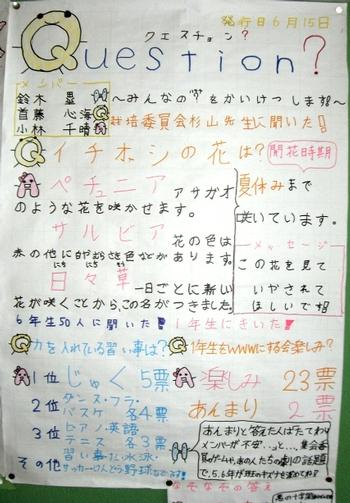 発行日6月15日
クエスチョン?
Question?
メンバー
鈴木 塁
首藤 心海
小林 千晴
〜みんなの"?"をかいけつします〜
栽培委員会杉山先生に聞いた!
Qイチオシの花は?
開花時期
A ペチュニア アサガオ
のような花を咲かせます。
夏休みまで
咲いています。
サルビア 花の色は
赤の他に白やむらさき色などが あります。
日々草 一日ごとに新しい
にち にち そう
花が咲くことから、この名がつきました。
メッセージ
この花を見て
いやされて
ほしいです!
6年生50人に聞いた!
Q 力を入れている習い事は?
A 1位 じゅく 5票
2位 ダンス・フラ・
バスケ 各4票
3位 ピアノ・英語
テニス 各3票
その他 習い事ない、水泳、
サッカー、けんどう、野球など
1年生にきいた!
Q 1年生をwwwにする会楽しみ?
A 楽しみ 23票
あんまり 2票
あんまりと答えた人は"たてわり
メンバーが不安…"っと…集会委
員のゲームや、あの人たちの劇の話題
で、5、6年が
なぞなぞの答え